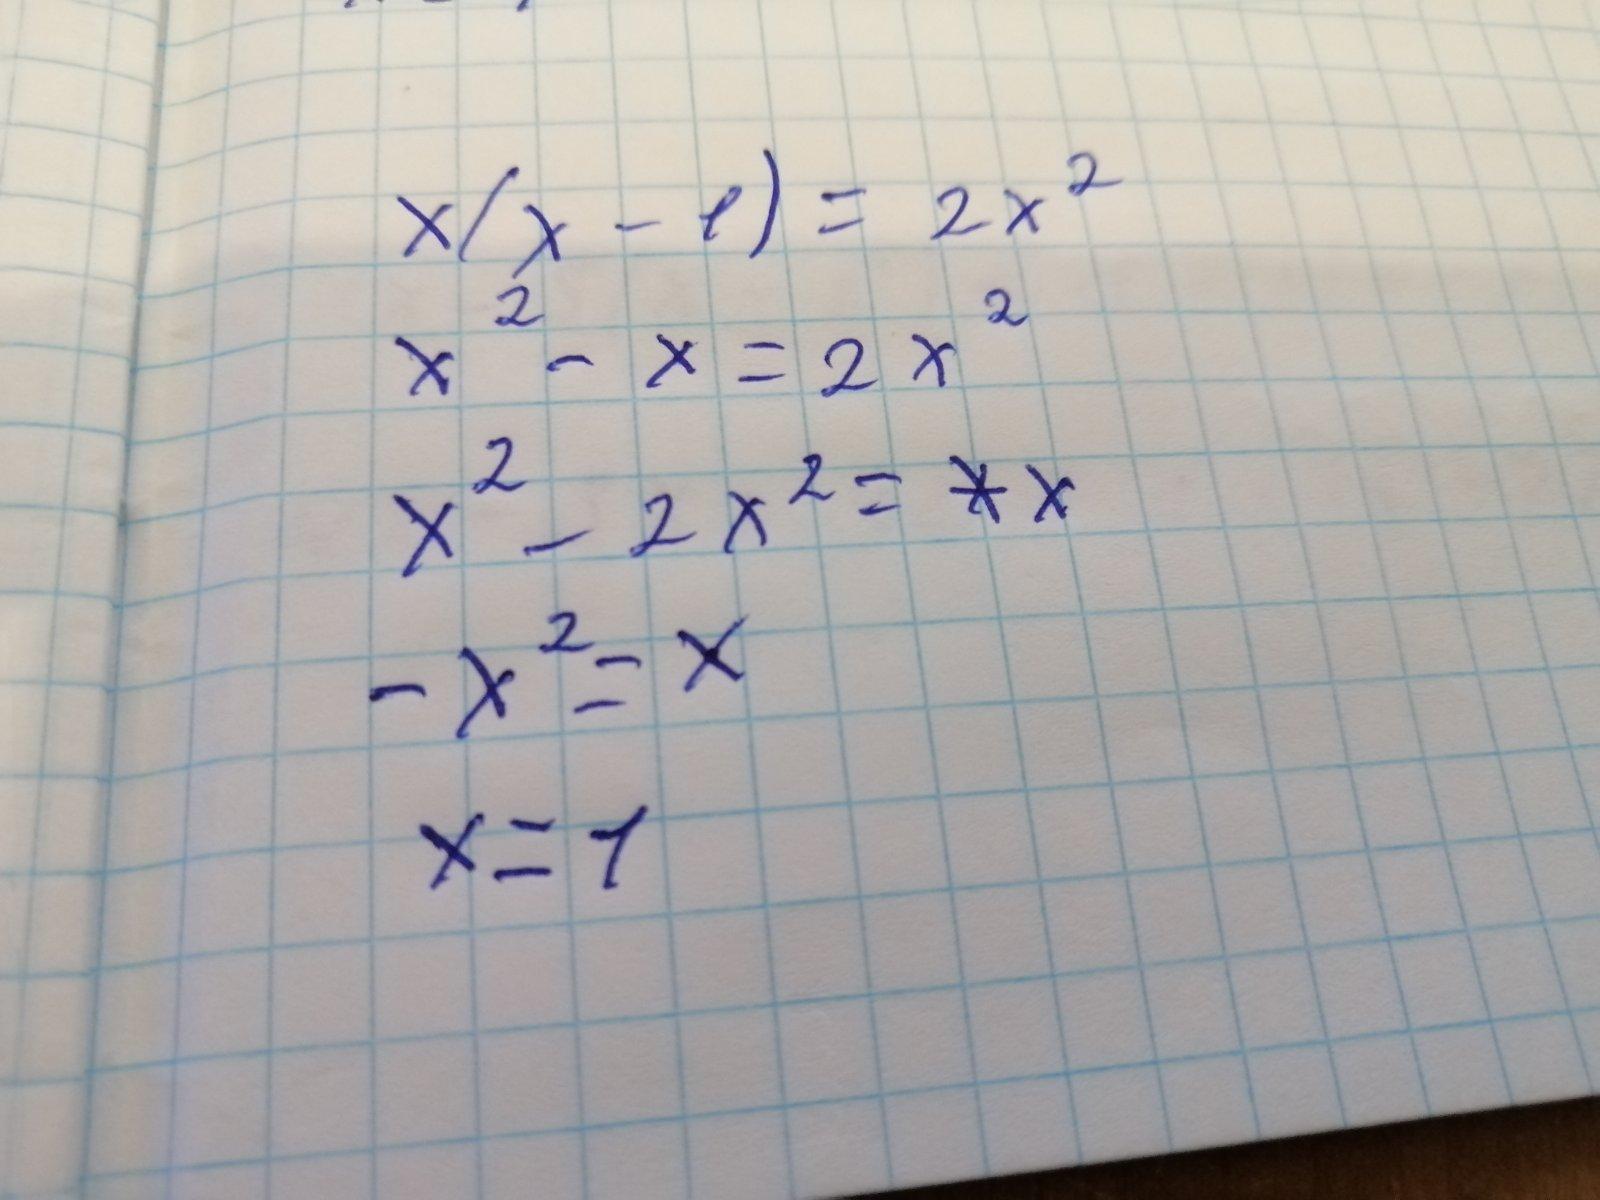 x(x - 1) = 2x²
x² - x = 2x²
x² - 2x² = x
- x² = x
x = 1